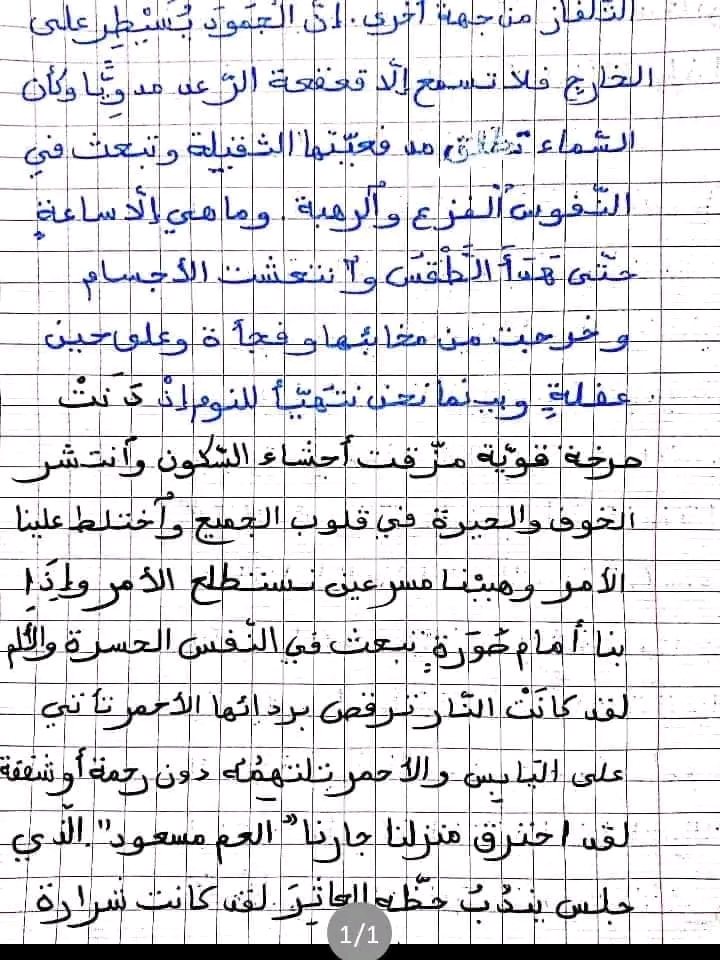 التلفاز من جهة أخرى. إنّ الجمود يُسَيْطِر على
الخارج فلا تسمع إلّا قعقعة الرّعد مدوِيًّا وكأن
السّماء تطلق مدفعيّتها الثقيلة وتبعث في
النّفوس الفزع والرهبة. وما هي إلّا ساعةٍ
حتّى هَدَأَ الطَّقْسَ وانتعشت الأجسام
وخرجت من مخابئها وفجأة وعلى حين
غفلةٍ وبينما نحن نتهيّأ للنوم إذْ دَنَتْ
صرخة قويّة مزّقت أحشاء السّكون وانتشر
الخوف والحيرة في قلوب الجميع واُختلط علينا
الأمر وهببْنا مسرعين نستطلع الأمر وإذَا
بنا أمام صُورَةٍ تبعث في النّفس الحسرة والألم
لقد كانَتْ النّار ترقص بردائها الأحمر تأتي
على اليابس والأحمر تلتهمُه دون رحمة أو شفقة
لقد احترق منزلنا جارنا "العم مسعود". الّذي
جلس يندُبُ حظّه العاثِرَ لقد كانت شرارة
1/1